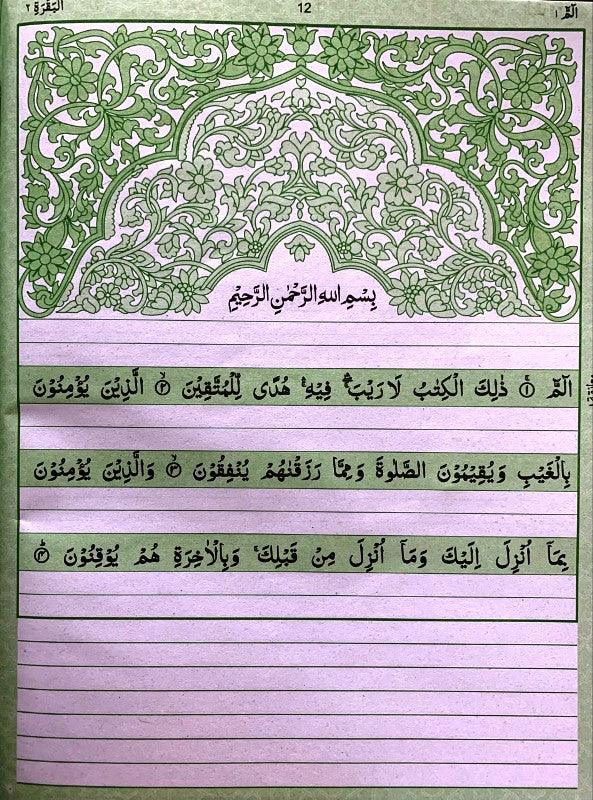 الٓمّٓ ١ 12 الْبَقَرَة ٢
بِسْمِ اللهِ الرَّحْمٰنِ الرَّحِيْمِ
الٓمّٓ ۚ ﴿١﴾ ذٰلِكَ الْكِتٰبُ لَا رَيْبَ ۛۚ فِيْهِ ۛۚ هُدًى لِّلْمُتَّقِيْنَ ۙ ﴿٢﴾ الَّذِيْنَ يُؤْمِنُوْنَ
بِالْغَيْبِ وَيُقِيْمُوْنَ الصَّلٰوةَ وَمِمَّا رَزَقْنٰهُمْ يُنْفِقُوْنَ ۙ ﴿٣﴾ وَالَّذِيْنَ يُؤْمِنُوْنَ
بِمَآ اُنْزِلَ اِلَيْكَ وَمَآ اُنْزِلَ مِنْ قَبْلِكَ ۚ وَبِالْاٰخِرَةِ هُمْ يُوْقِنُوْنَ ؕ ﴿٤﴾